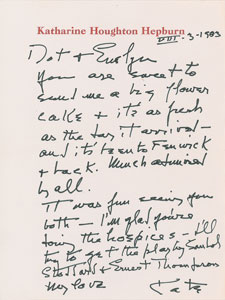 Katharine Houghton Hepburn
III - 3 - 1983
Dot + Evelyn
You are sweet to
send me a big flower
cake + it's as fresh
as the day it arrived -
and it's been to Fenwick
+ back. Much admired
by all.
It was fun seeing you
both - I'm glad you're
doing the hospices - I'll
try to get the play by
Shepard + Ernest Thompson
My love Kate